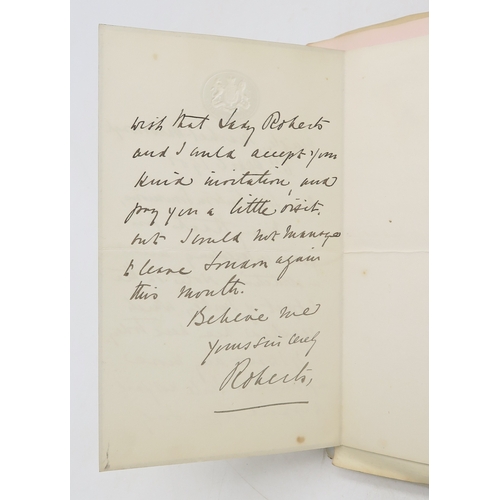 wish that Lady Roberts
and I could accept your
kind invitation, and
pay you a little visit,
but I could not manage
to leave London again
this month.
Believe me
Yours sincerely
Roberts,